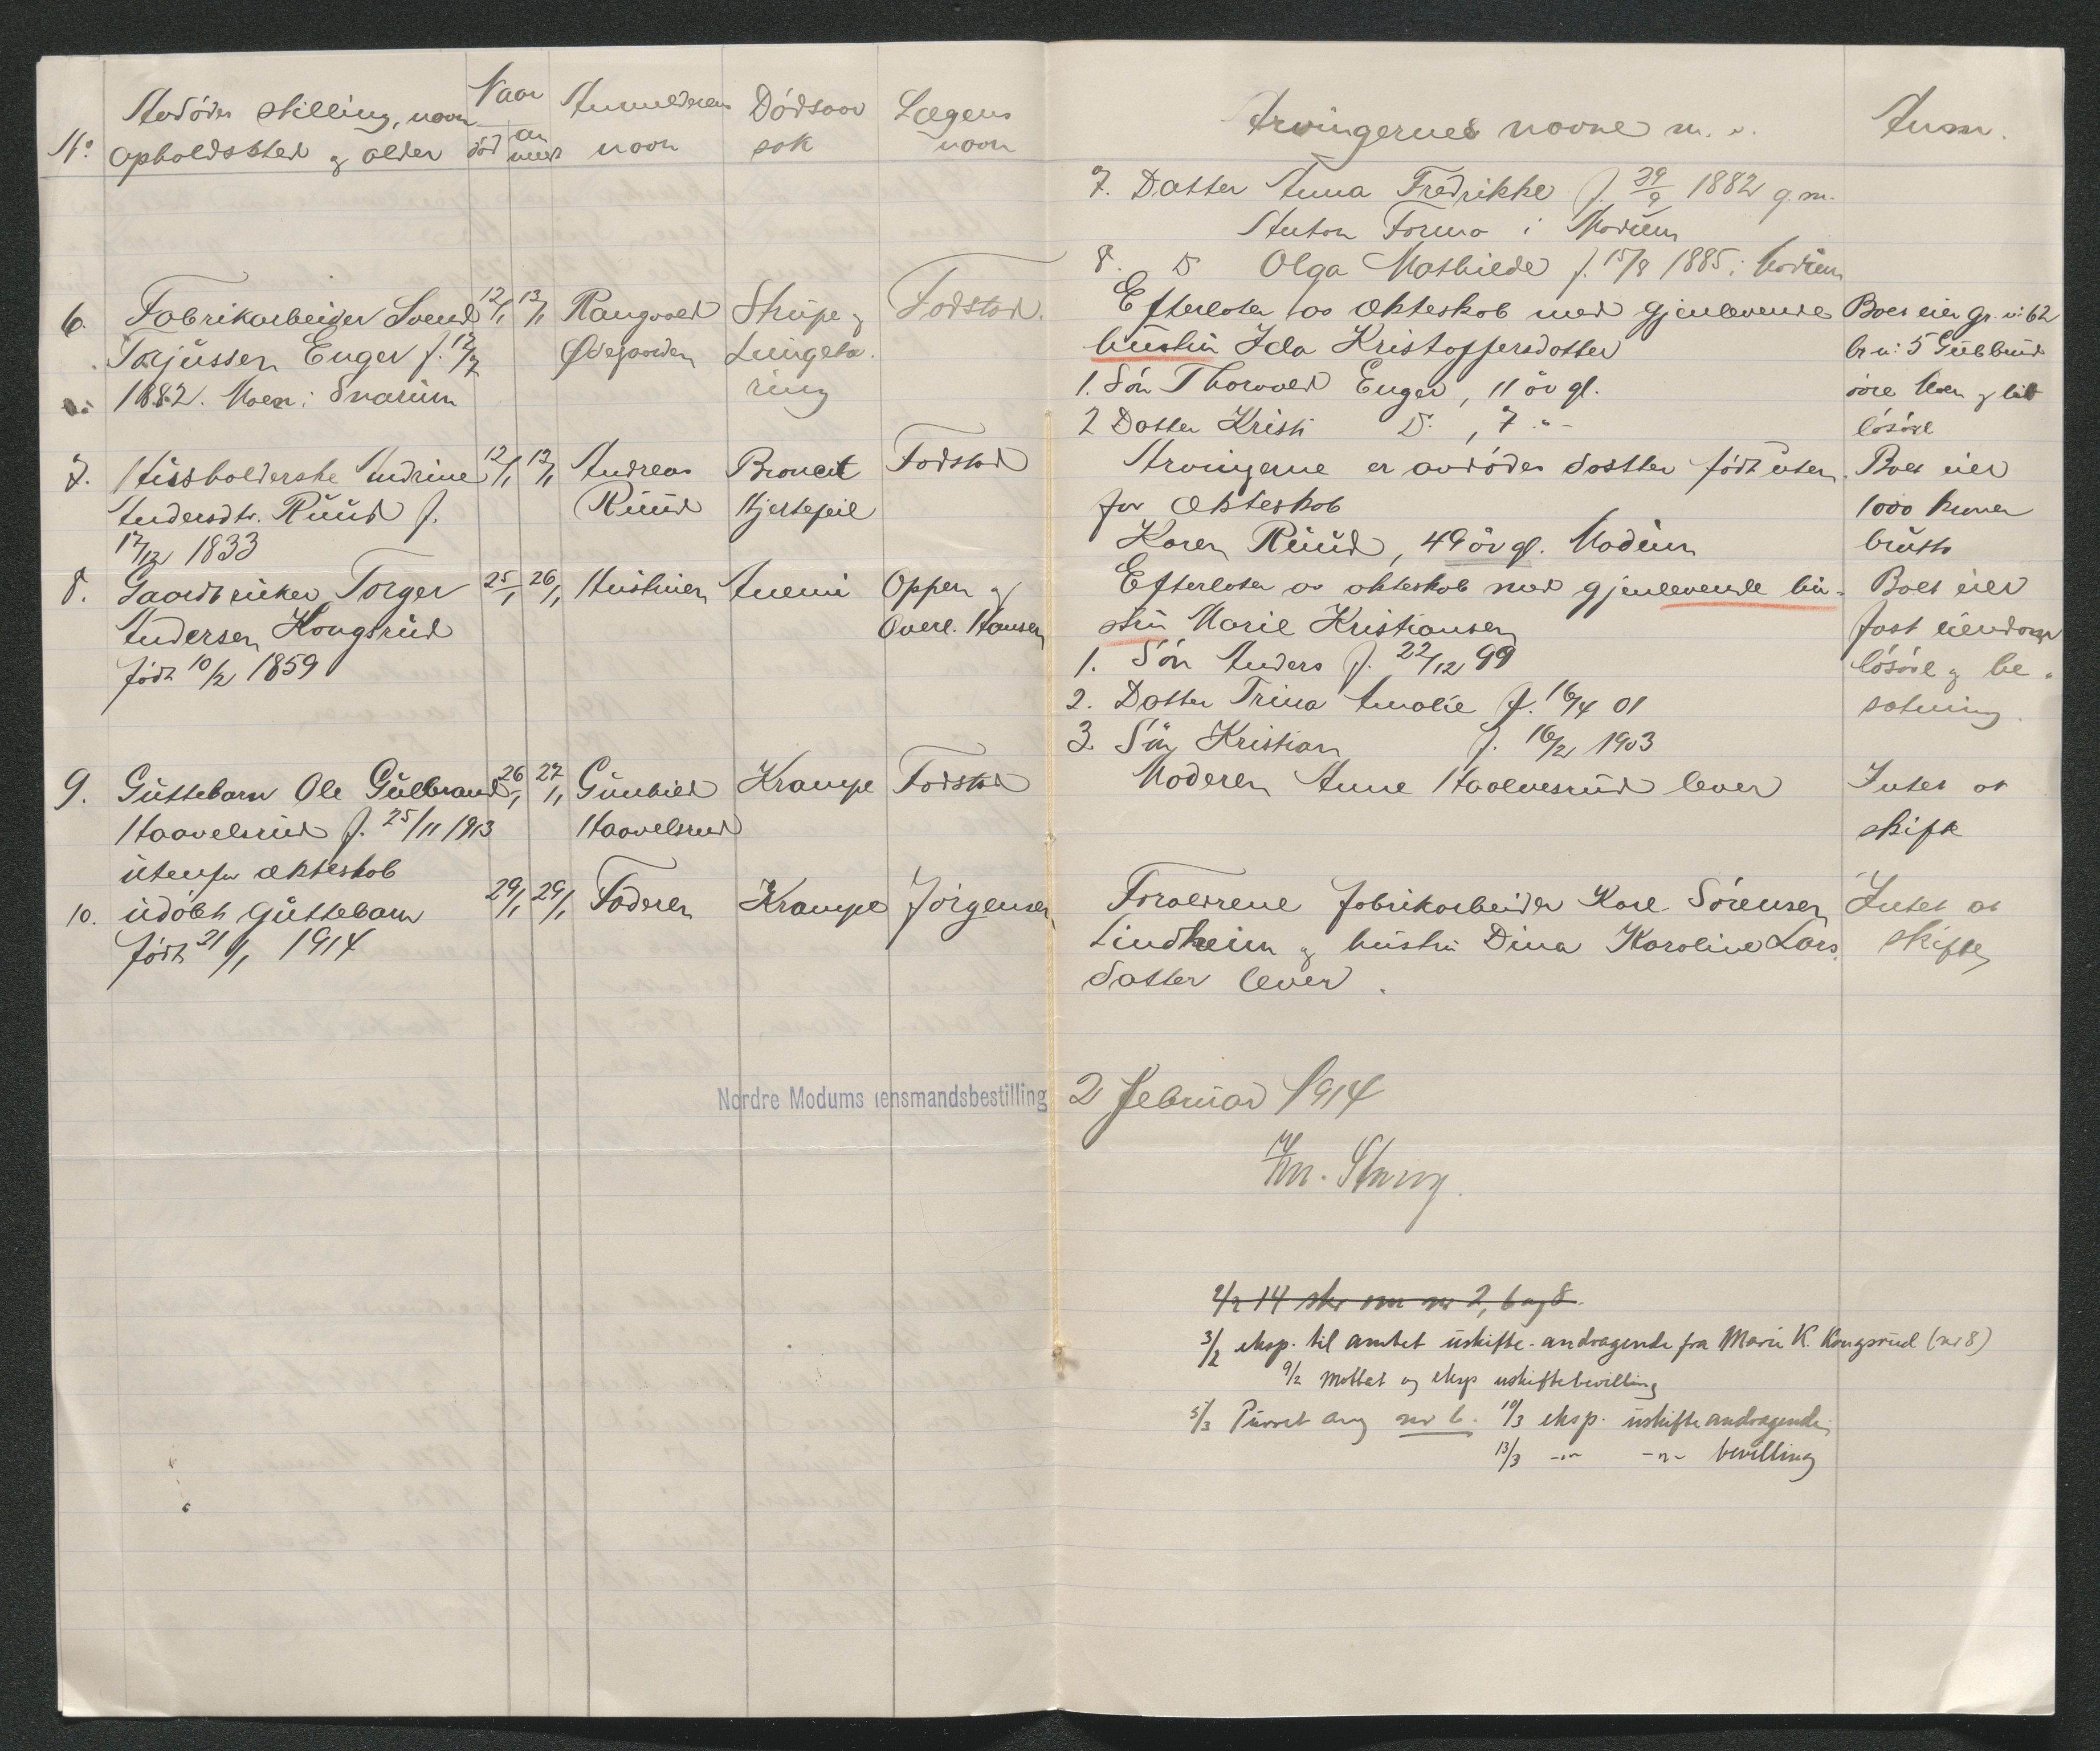 No.
Avdødes stilling, navn
opholdssted og alder
Naar
død
an
meldt
Anmelderens
navn
Dødsaar
sak
Lægens
navn
Arvingernes navne m. v.
Anm.
7. Datter Anna Fredrikke f. 29/9 1882 g.m.
Anton Formo i Modum
8. D Olga Mathilde f. 15/8 1885 i Modum
6. Fabrikarbeider Svend
Torjussen Enger f. 12/7
1882. Moen i Snarum
12/1 13/1
Rangvald
Ødegaarden
Strupe og
Lungetæ
ring
Fodstad.
Efterlater av ækteskab med gjenlevende
hustru Ida Kristoffersdatter
1. Søn Thorvald Enger, 11 år gl.
2 Datter Kristi D. , 7 -"-
Boet eier gr. n: 62
br n: 5 Gubberud
øvre Moen og litt
løsøre
7. Husholderske Andrine
Andersdtr. Ruud f.
17/12 1833
12/1 12/1
Andreas
Ruud
Broncit
Hjertefeil
Fodstad
Arvingerne er avdødes datter født uten
for ækteskab
Karen Ruud, 49 år gl. Modum
Boet eier
1000 kroner
brutto
8. Gaardbruker Torger
Andersen Kongsrud
født 10/2 1859
25/1 26/1
Hustruen
Anemi
Oppen og
Overl. Hansen
Efterlater av ækteskab med gjenlevende hu-
stru Marie Kristiansen
1. Søn Anders f. 22/12 99
2. Datter Trina Amalie f. 16/4 01
3. Søn Kristian f. 16/2 1903
Boet eier
fast eiendom
løsøre og be-
sætning.
9. Guttebarn Ole Gulbrand
Haavelsrud f. 25/11 1913
utenfor ækteskab
26/1 27/1
Gunhild
Haavelsrud
Krampe
Fodstad
Moderen Anne Haavelsrud lever
Intet at
skifte
10. udøbt guttebarn
født 21/1 1914
29/1 29/1
Faderen
Krampe
Jørgensen
Foræledrene fabrikarbeider Karl Sørensen
Lindheim og hustru Dina Karoline Lars
datter lever.
Intet at
skifte
Nordre Modums lensmandsbestilling 2 februar 1914
2/2 14 skr om nr 2, 6 og 8.
3/2 eksp. til amtet uskifte-andragende fra Marie K. Kongsrud (nr 8)
9/2 mottat og eksp uskiftebevilling
5/3 Purret ang nr 6. 10/3 eksp. uskifteandragende
13/3 -"- -"- bevilling